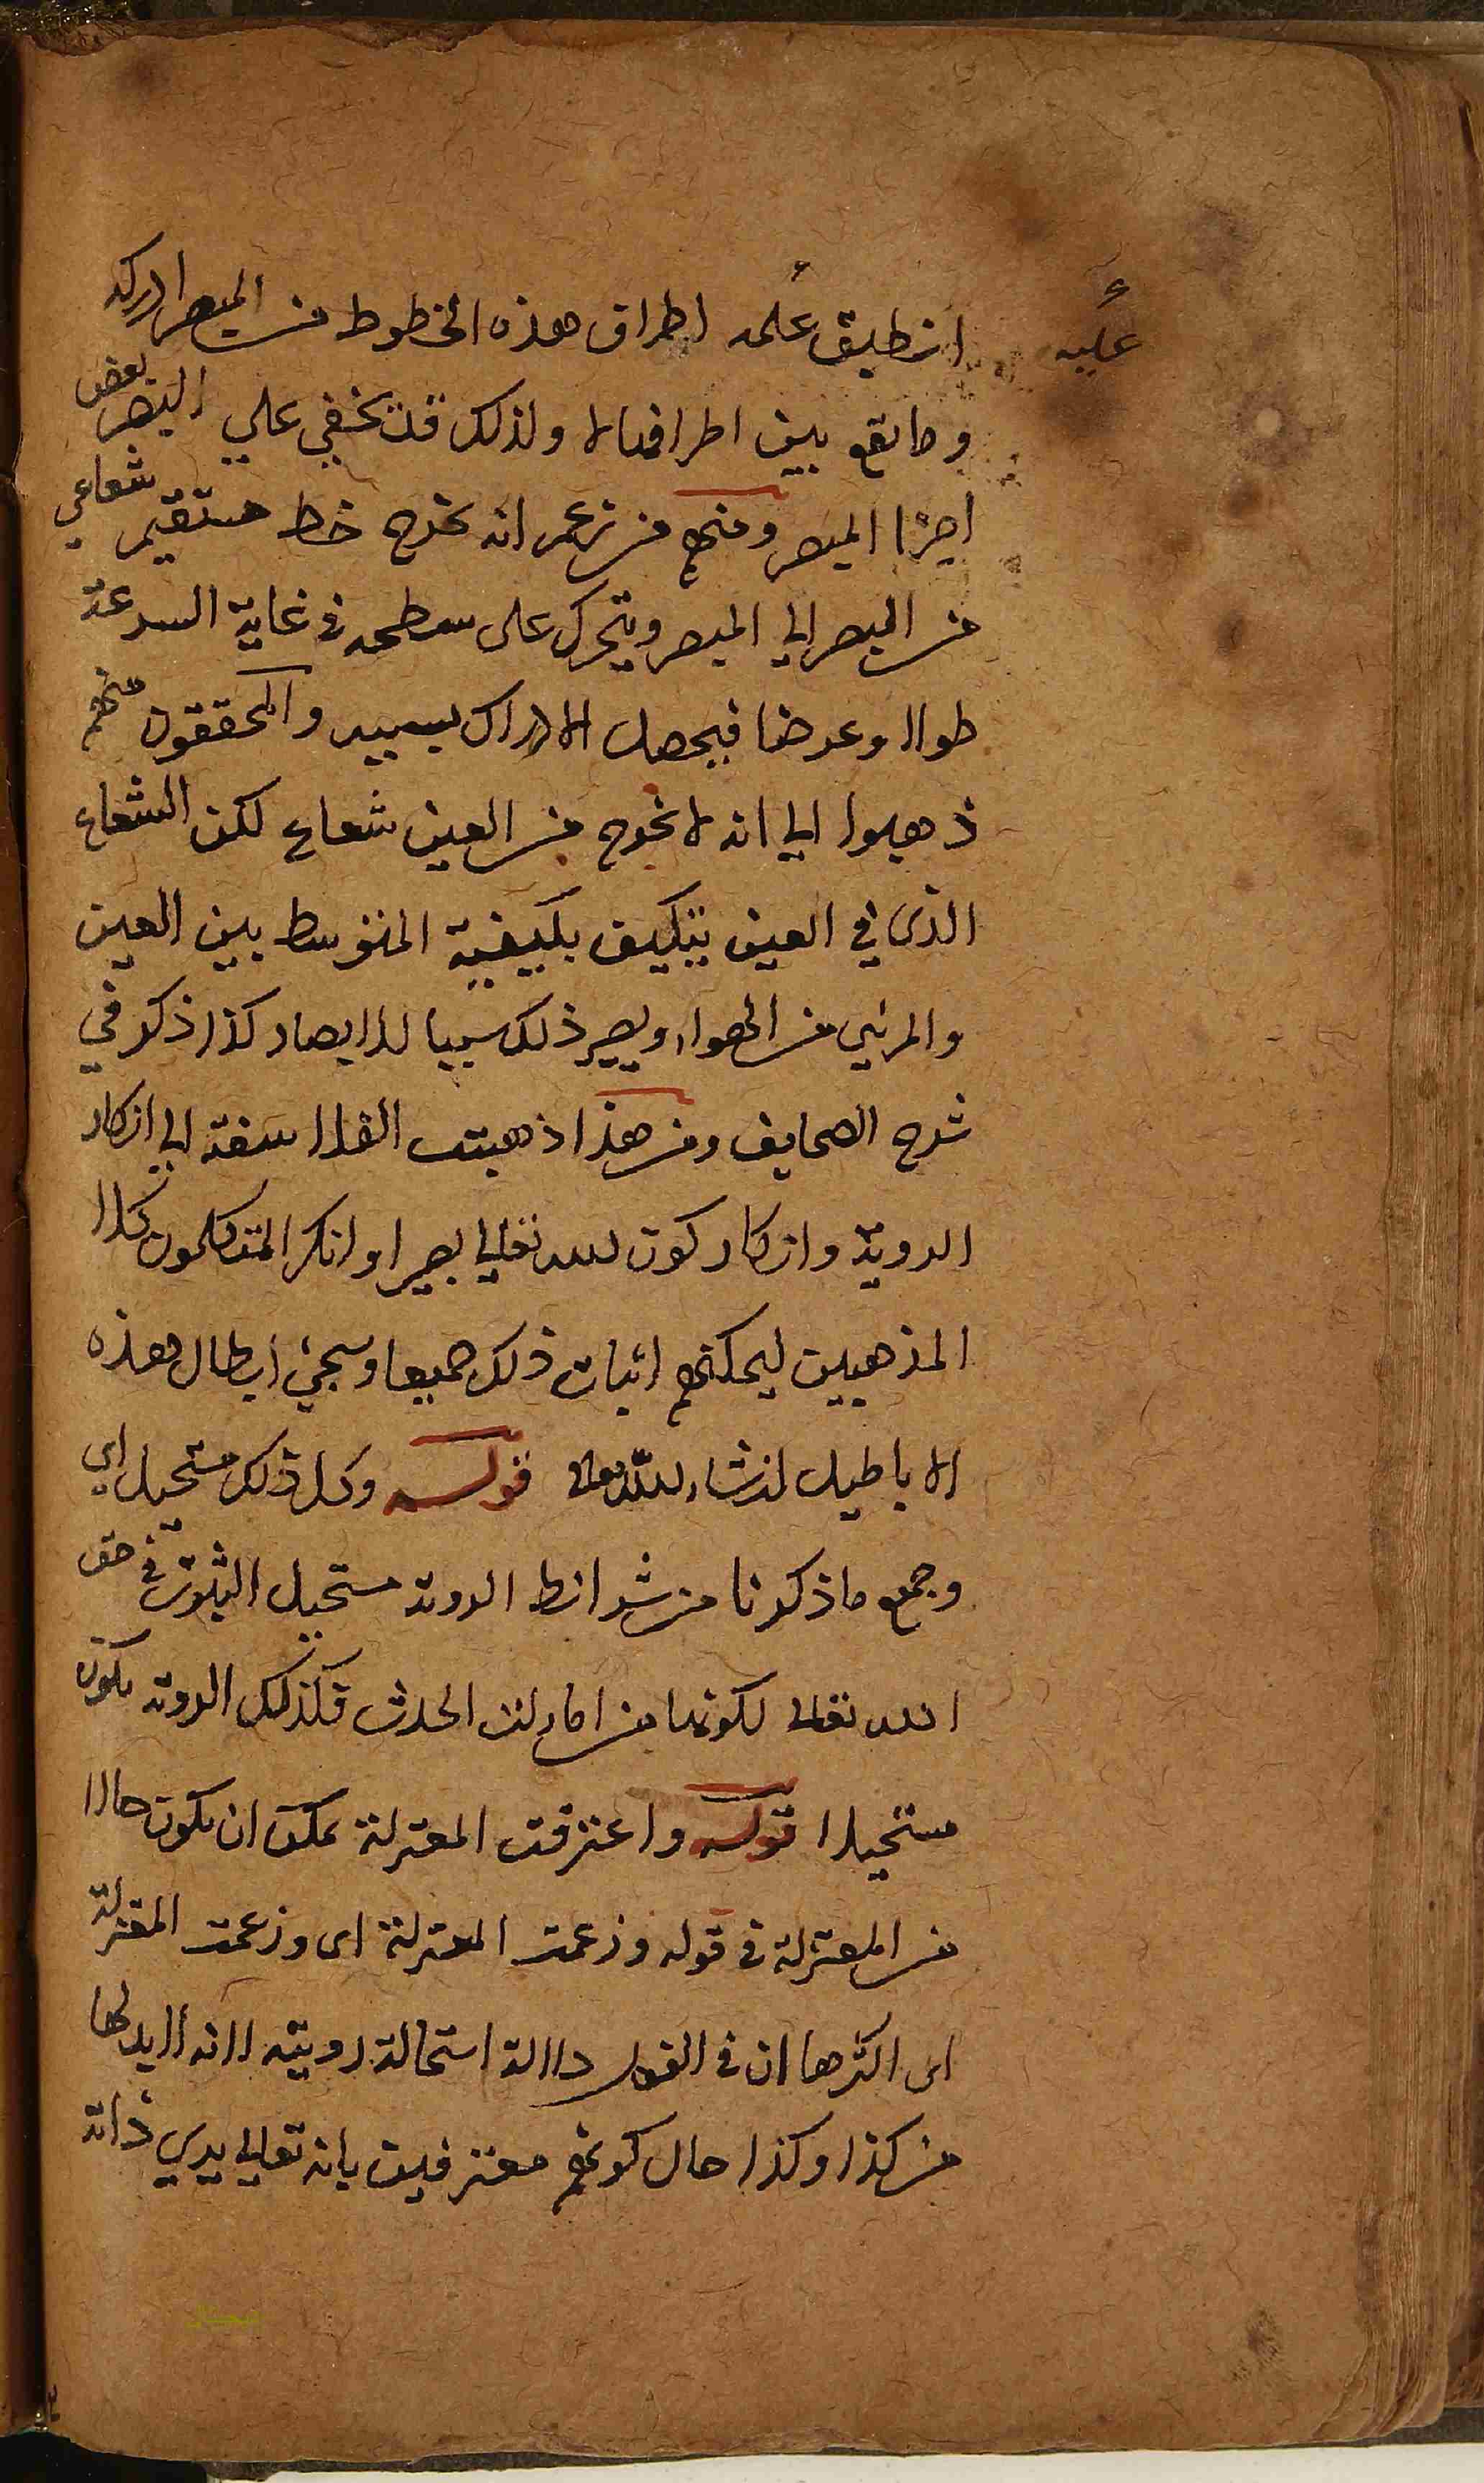 عليه
انطبق عليه اطراف هذه الخطوط من المبصر ادركه
وما يقع بين اطرافها لا ولذلك قد يخفي علي البصر بعض
اجزا المبصر ومنهم من زعم انه يخرج خط مستقيم شعاعي
من البصر الي المبصر ويتحرك على سطحه في غاية السرعة
طولا وعرضا فيحصل الادراك بسببه والمحققون منهم
ذهبوا الي انه لا يخرج من العين شعاع لكن الشعاع
الذي في العين يتكيف بكيفية المتوسط بين العين
والمرئي من الهواء ويصير ذلك سببا للابصار كذا ذكر في
شرح الصحايف ومن هذا ذهبت الفلاسفة الي انكار
الروية وانكار كون الله تعالي بصيرا وانكر المتكلمون كلا
المذهبين ليمكنهم اثبات ذلك جميعا وسيجئ ابطال هذه
الاباطيل انشاء الله تعالى قوله وكل ذلك مستحيل اي
وجميع ما ذكرنا من شرائط الروية مستحيل الثبوت في حق
الله تعالى لكونها من امارات الحدث فكذلك الروية يكون
مستحيلا قوله واعترفت المعتزلة يمكن ان يكون حالا
من المعتزلة في قوله وزعمت المعتزلة اى وزعمت المعتزلة
اى اكثرها ان في القول دلالة استحالة رويته لانه لا يد لها
من كذا وكذا حال كونهم معترفين بانه تعالي يري ذاته